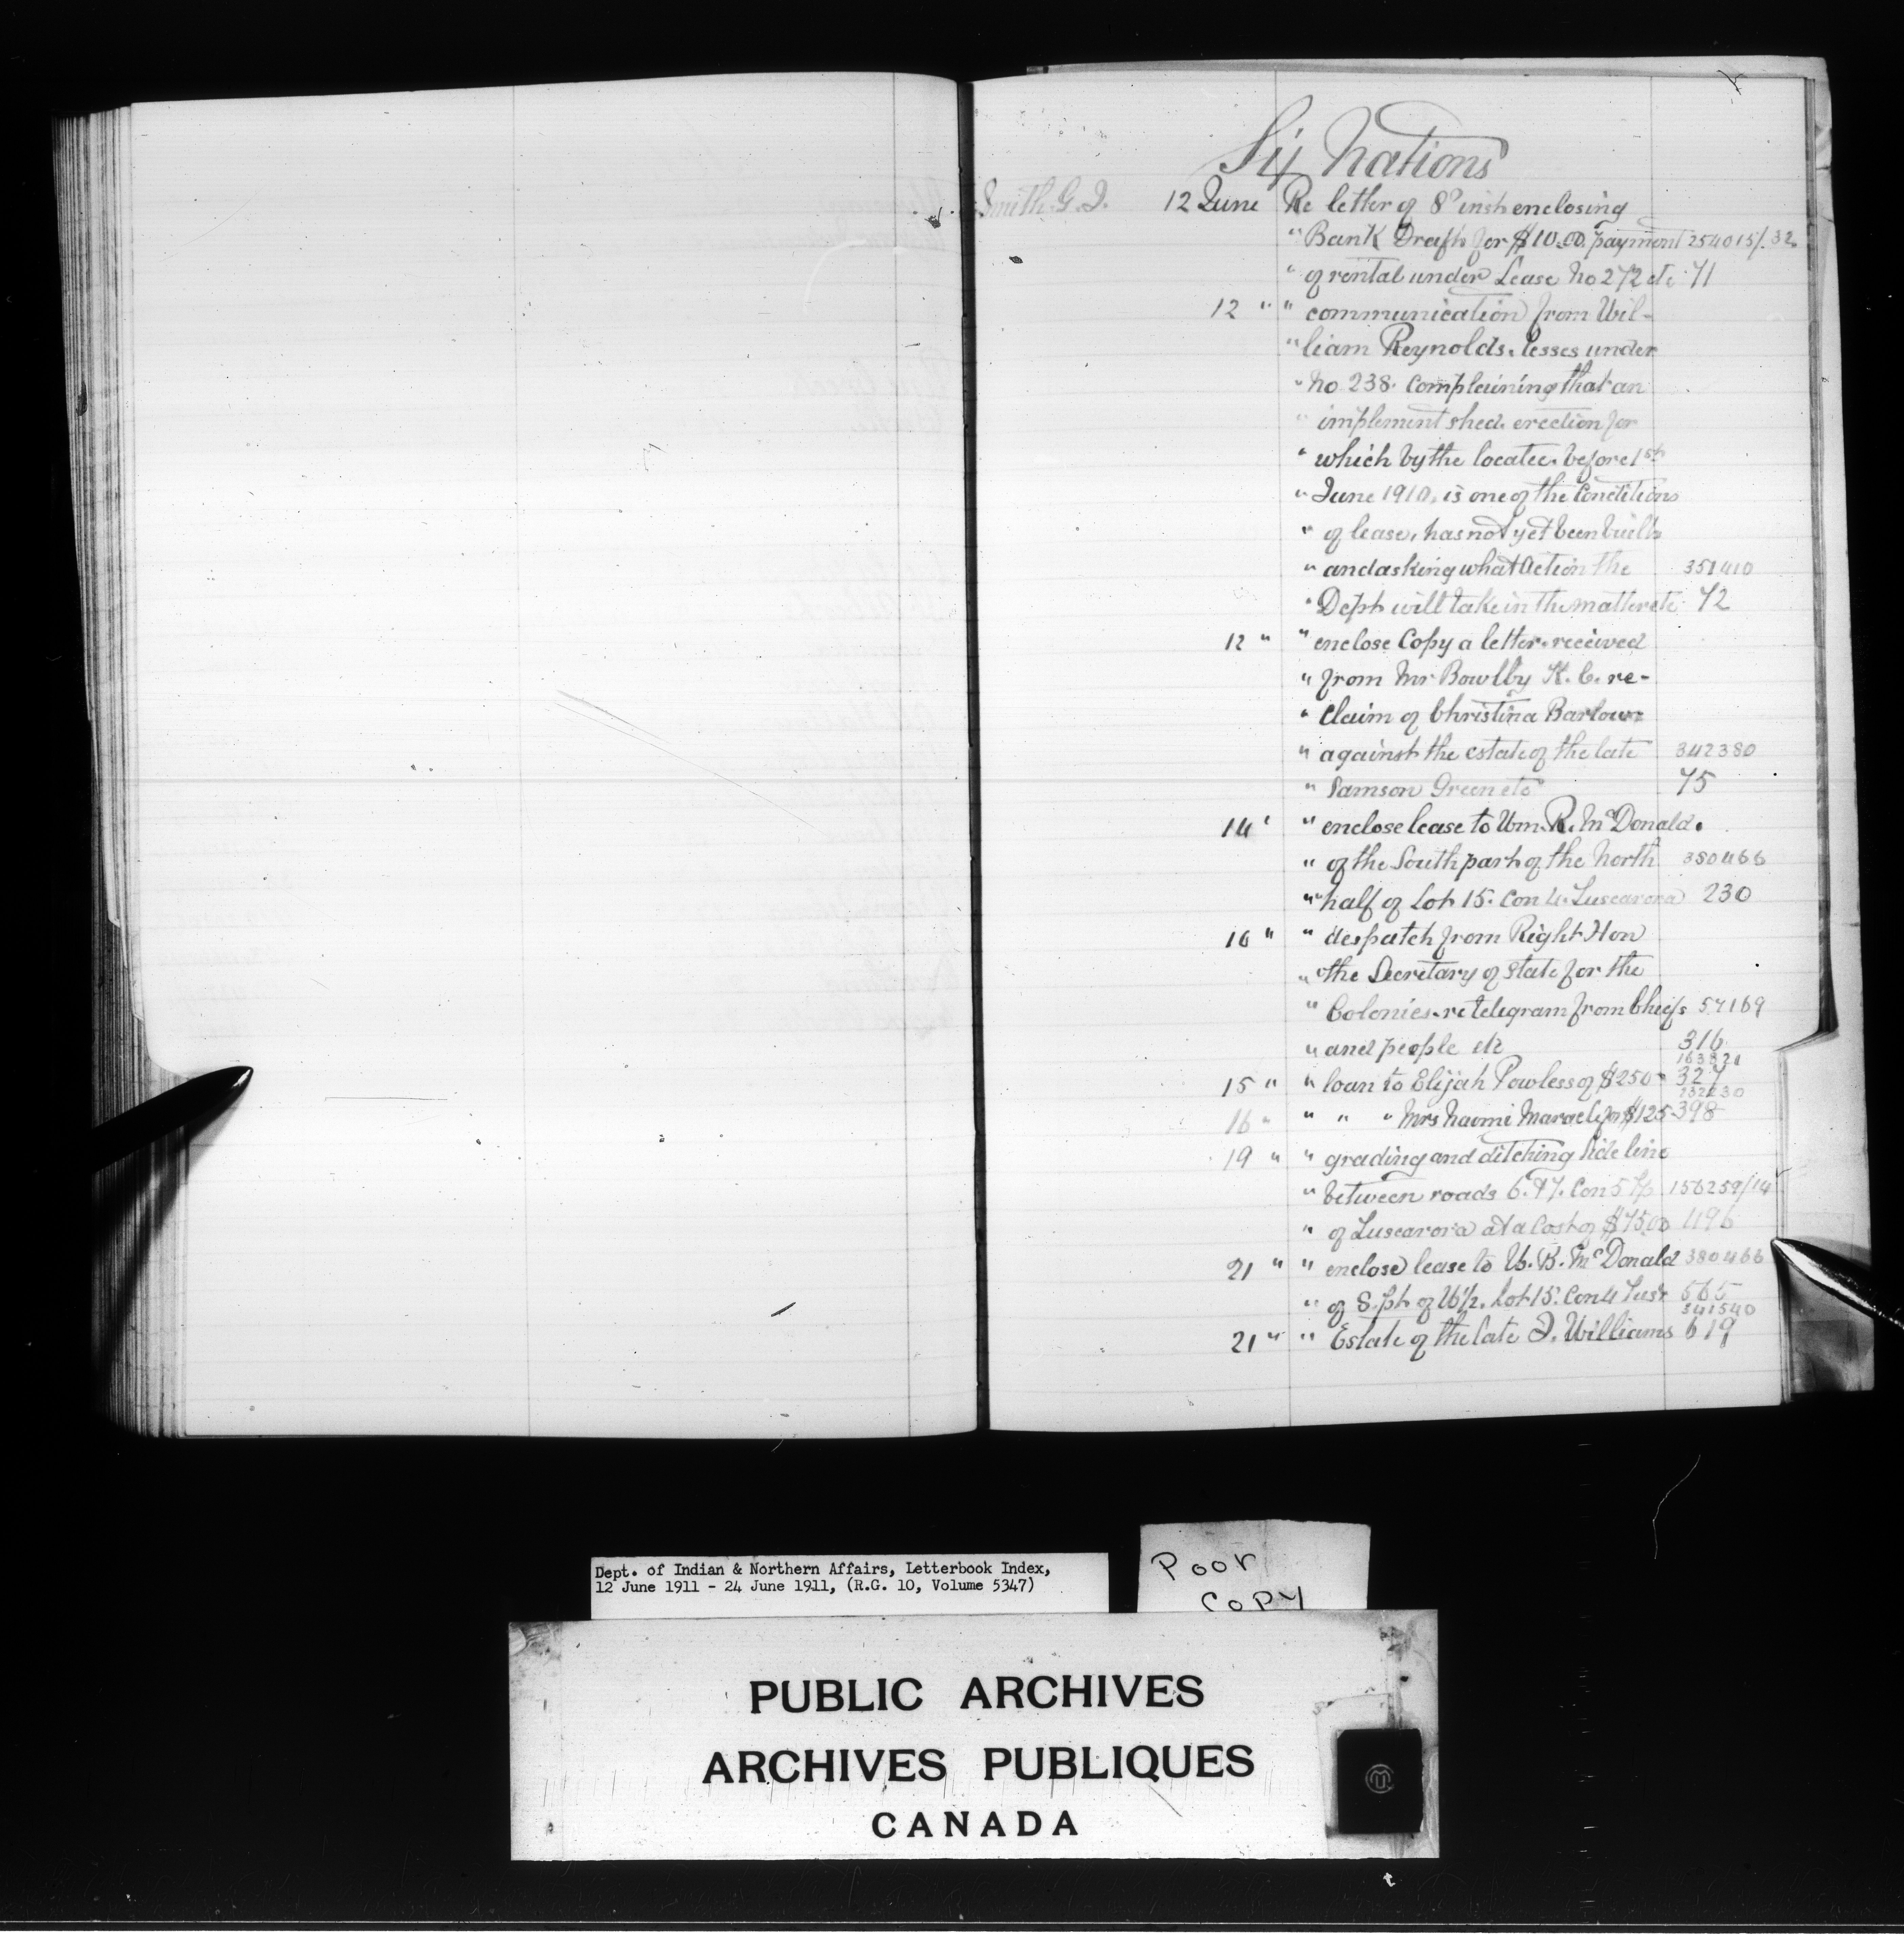 Six Nations
Smith G. J. 12 June Re letter of 8th inst enclosing
" Bank Draft for $10.00 payment 254015/.32
" of rental under Lease No 272 etc 71
12 " " communication from Wil-
" liam Reynolds, lesses under
" No 238. Complaining that an
" implement shed, erection for
" which by the locatee, before 1st
" June 1910, is one of the Conditions
" of lease, has not yet been built
" and asking what action the 351410
" Dept will take in the matter etc 72
12 " " enclose Copy a letter received
" from Mr Bowlby K.C. re-
" Claim of Christina Barlow
" against the estate of the late 342380
" Samson Green etc 75
14 " " enclose lease to Wm. R. McDonald.
" of the South part of the North 380466
" half of Lot 15. Con 4. Tuscarora 230
16 " " despatch from Right Hon
" the Secretary of State for the
" Colonies. re telegram from Chiefs 57169
" and people etc 316
163821
15 " " loan to Elijah Powless of $250 327
232230
16 " " " " Mrs Naomi Maracle for $125 398
19 " " grading and ditching side line
" between roads 6. & 7. Con 5 Tp 156259/14
" of Tuscarora at a Cost of $75.00 496
21 " " enclose lease to W. R. McDonald 380466
" of S. pt of N½. Lot 15. Con 4 Tus'r 565
341540
21 " " Estate of the late J. Williams 619
Dept. of Indian & Northern Affairs, Letterbook Index,
12 June 1911 - 24 June 1911, (R.G. 10, Volume 5347)
Poor
Copy
PUBLIC ARCHIVES
ARCHIVES PUBLIQUES
CANADA